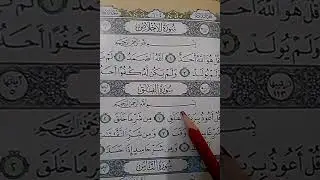 سُورَةُ الإِخْلَاصِ
بِسْمِ اللَّهِ الرَّحْمَٰنِ الرَّحِيمِ
قُلْ هُوَ اللَّهُ أَحَدٌ ١ اللَّهُ الصَّمَدُ ٢
وَلَمْ يُولَدْ ٣ وَلَمْ يَكُن لَّهُ كُفُوًا أَحَدٌ
سُورَةُ الْفَلَقِ
بِسْمِ اللَّهِ الرَّحْمَٰنِ الرَّحِيمِ
قُلْ أَعُوذُ بِرَبِّ الْفَلَقِ ١ مِن شَرِّ مَا خَلَقَ ٢
وَقَبَ ٣ وَمِن شَرِّ
وَمِن شَرِّ حَاسِدٍ إِذَا
سُورَةُ النَّاسِ